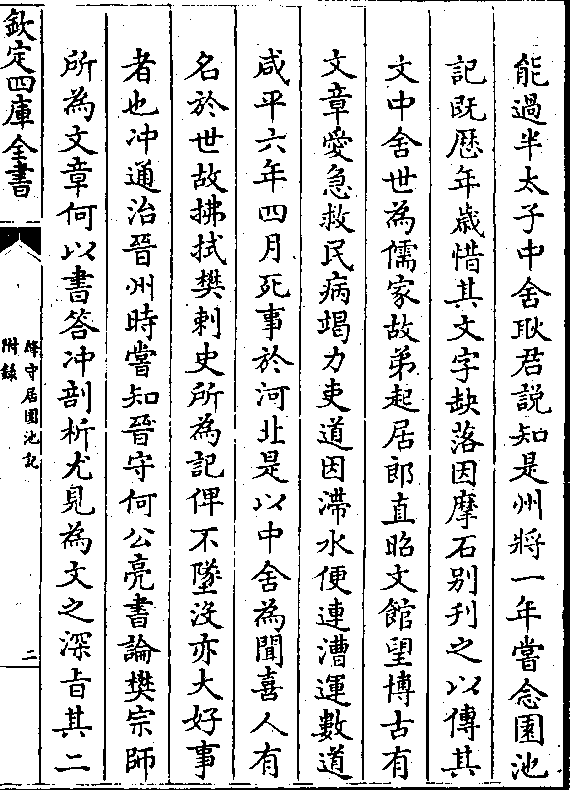 能過半太子中舍耿君説知是州將一年嘗念園池
記既歴年歳惜其文字缺落因摩石别刋之以傳其
文中舍世為儒家故弟起居郎直昭文館望博古有
文章愛急救民病竭力吏道因滯水便連漕運數道
咸平六年四月死事於河北是以中舍為聞喜人有
名於世故拂拭樊刺史所為記俾不墜沒亦大好事
者也冲通治晉州時嘗知晉守何公亮書論樊宗師
所為文章何以書答冲剖析尤見為文之深旨其二
欽定四庫全書
絳守居園池記
附録
二